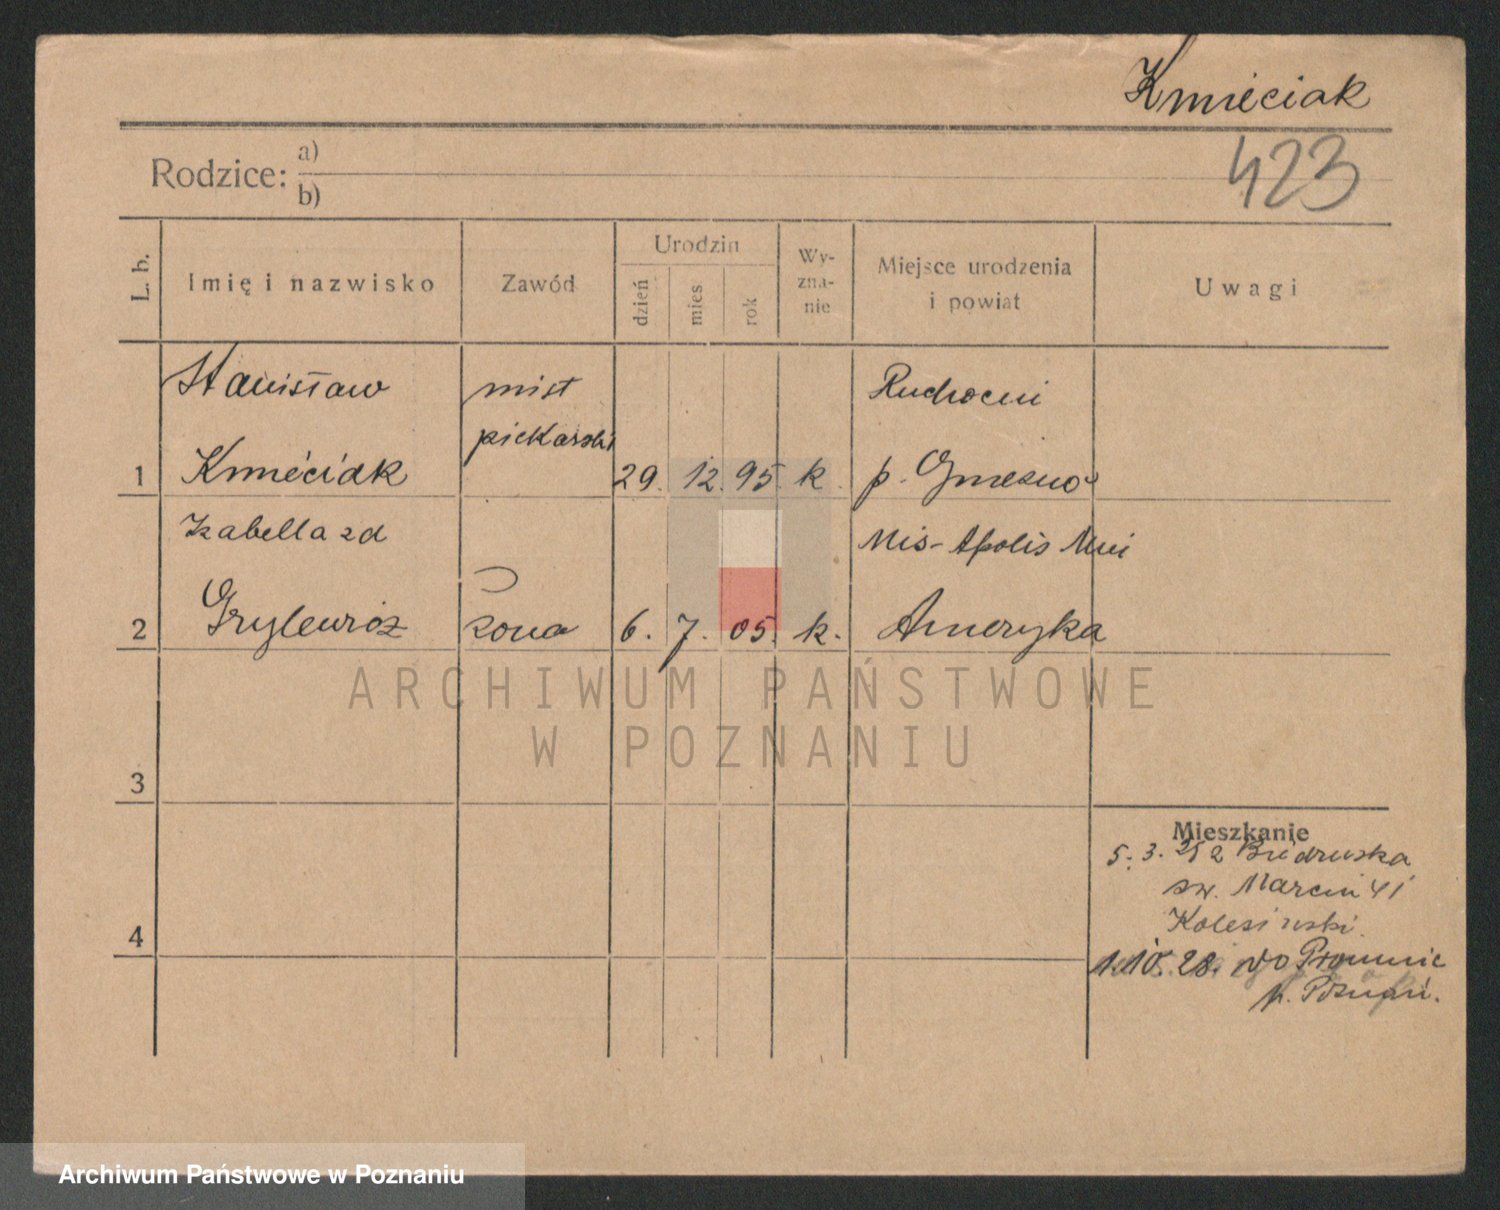 Kmieciak
423
Rodzice: a)
b)
L. b.
Imię i nazwisko
Zawód
Urodzin
dzień
mies
rok
Wy-
zna-
nie
Miejsce urodzenia
i powiat
Uwagi
Stanisław
mist
Ruchocin
piekarski
1 Kmieciak 29. 12. 95. k. p. Gniezno
Izabella zd
Mis-Apolis Mni
2 Grylewicz żona 6. 7. 05. k. Ameryka
ARCHIWUM PAŃSTWOWE
W POZNANIU
3
Mieszkanie
5. 3. Biedruska
św. Marcin 41
4
1.10.28. do
p. Poznań.
Archiwum Państwowe w Poznaniu